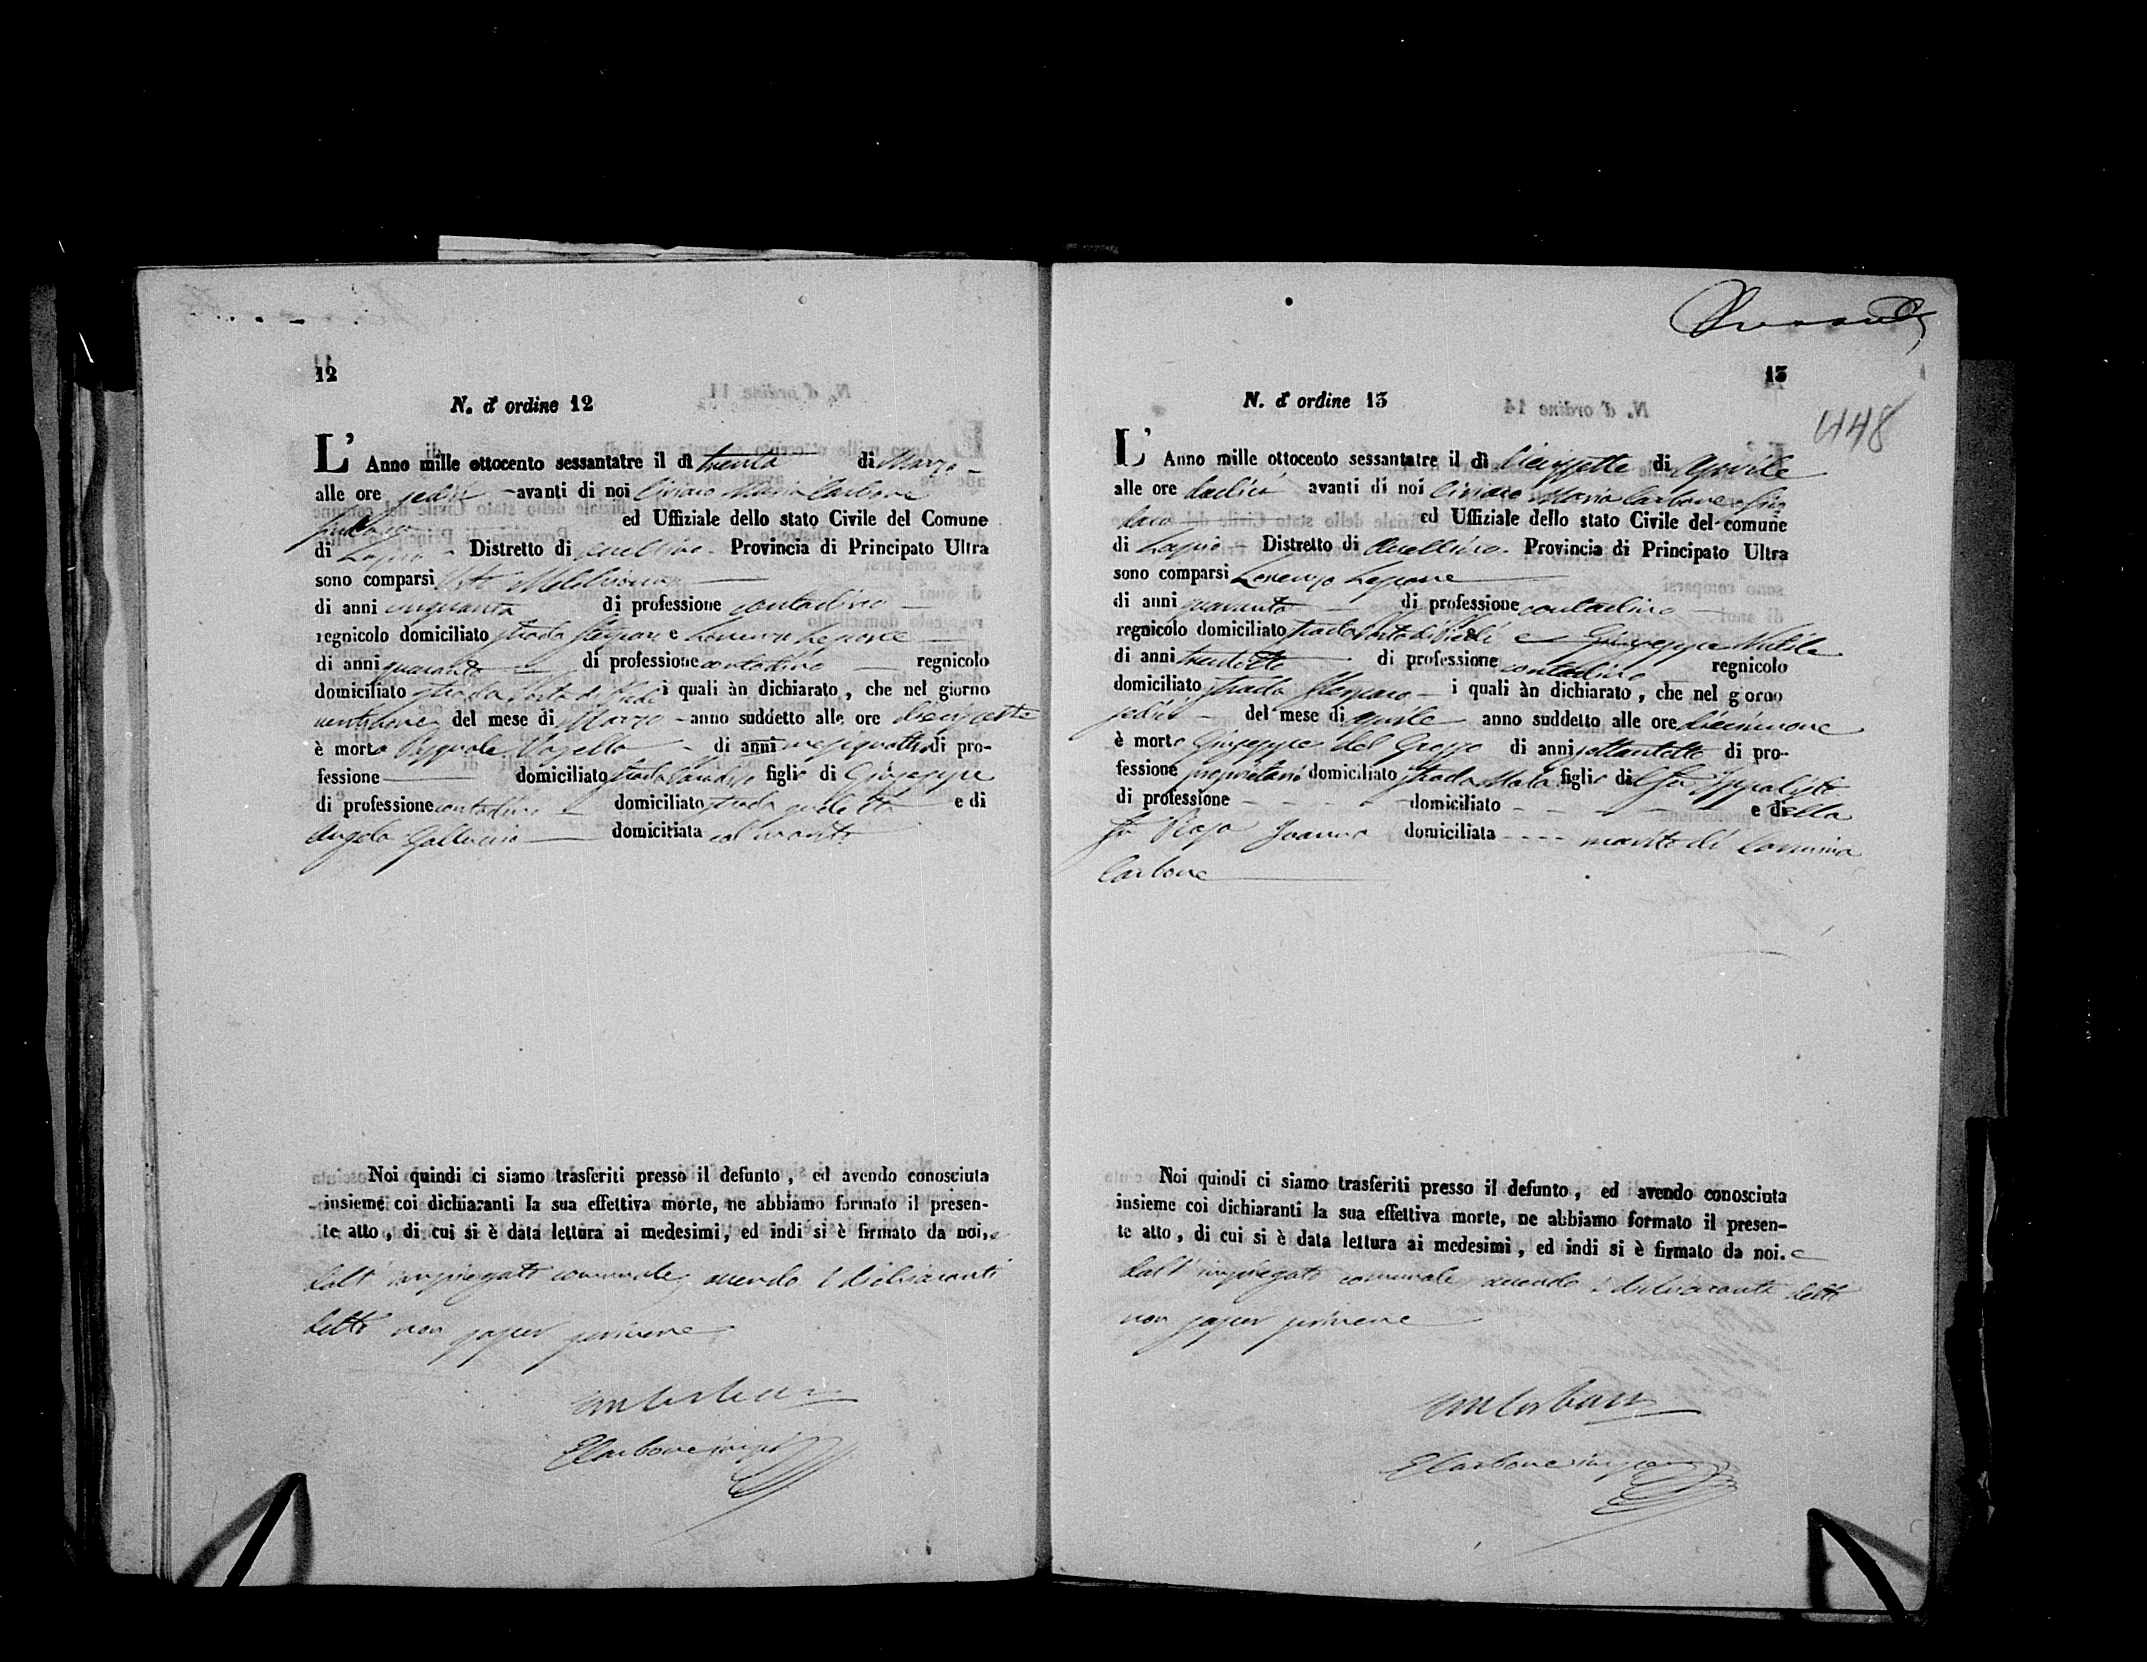 12
N. d' ordine 12
L' Anno mille ottocento sessantatre il dì trenta di Marzo
alle ore sedici avanti di noi Ciriaco Maria Carbone
Sindaco ed Uffiziale dello stato Civile del Comune
di Lapio Distretto di Avellino Provincia di Principato Ultra
sono comparsi Vito
di anni cinquanta di professione contadino
regnicolo domiciliato strada e Lorenzo Lepore
di anni quaranta di professione contadino regnicolo
domiciliato strada Porta di Piedi i quali àn dichiarato, che nel giorno
ventinove del mese di Marzo anno suddetto alle ore diecisette
è morto Pasquale di anni mesi quattro di pro-
fessione domiciliato strada figlio di Giuseppe
di professione contadino domiciliato strada e di
Angela Galluccio domicitiata col marito
Noi quindi ci siamo trasferiti presso il defunto, ed avendo conosciuta
insieme coi dichiaranti la sua effettiva morte, ne abbiamo formato il presen-
te atto, di cui si è data lettura ai medesimi, ed indi si è firmato da noi, e
dall' impiegato comunale, avendo i dichiaranti
detto non saper scrivere
CM Carbone
E Carbone
13
448
N. d' ordine 13
L' Anno mille ottocento sessantatre il dì diecissette di Aprile
alle ore dodici avanti di noi Ciriaco Maria Carbone Sin
daco ed Uffiziale dello stato Civile del comune
di Lapio Distretto di Avellino Provincia di Principato Ultra
sono comparsi Lorenzo Lepore
di anni quaranta di professione contadino
regnicolo domiciliato strada Porta di Piedi e Giuseppe
di anni trentotto di professione contadino regnicolo
domiciliato strada i quali àn dichiarato, che nel giorno
sedici del mese di Aprile anno suddetto alle ore diecinnove
è morto Giuseppe del Grosso di anni settantotto di pro-
fessione proprietario domiciliato strada figlio di fu Ippolisto
di professione - - - - domiciliato - - - e della
fu Rosa Joanna domiciliata - - - - marito di Carmina
Carbone
Noi quindi ci siamo trasferiti presso il defunto, ed avendo conosciuta
insieme coi dichiaranti la sua effettiva morte, ne abbiamo formato il presen-
te atto, di cui si è data lettura ai medesimi, ed indi si è firmato da noi. e
dall' impiegato comunale avendo i dichiaranti detto
non saper scrivere
CM Carbone
E Carbone